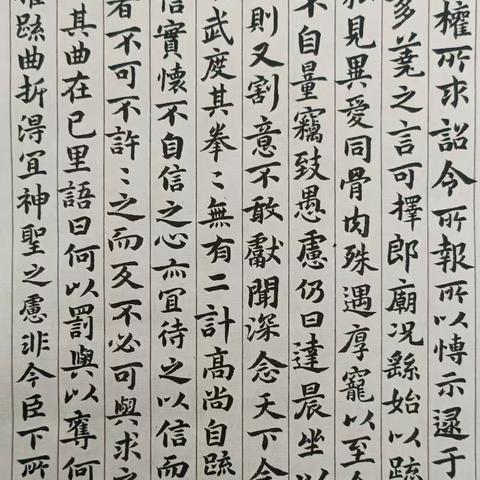 權所求詔令所報所以博示逮于
多蕘之言可擇郎廟況繇始以疏
私見異愛同骨肉殊遇厚寵以至今
不自量竊致愚慮仍日達晨坐以
則又割意不敢獻聞深念天下今
武度其拳〻無有二計高尚自疏
信實懷不自信之心亦宜待之以信而
者不可不許〻之而反不必可與求之
其曲在已里語曰何以罰與以奪何
權疏曲折得宜神聖之慮非今臣下所